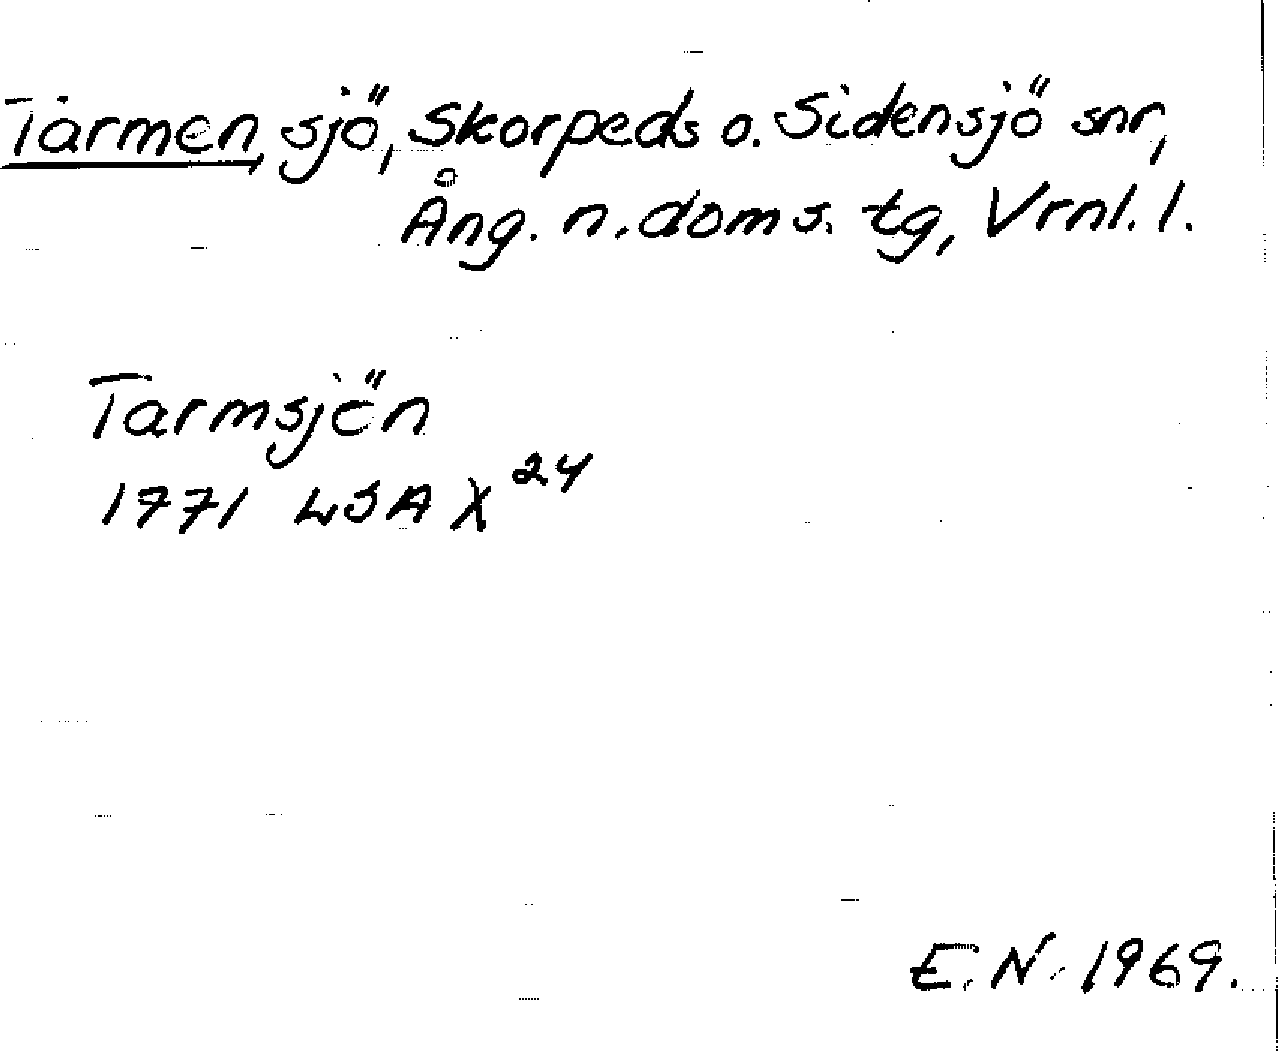 Tarmen, sjö, Skorpeds o. Sidensjö snr,
Ång. n. doms. tg, Vrnl. l.
Tarmsjön
1771 LSA X 24
E.N. 1969.